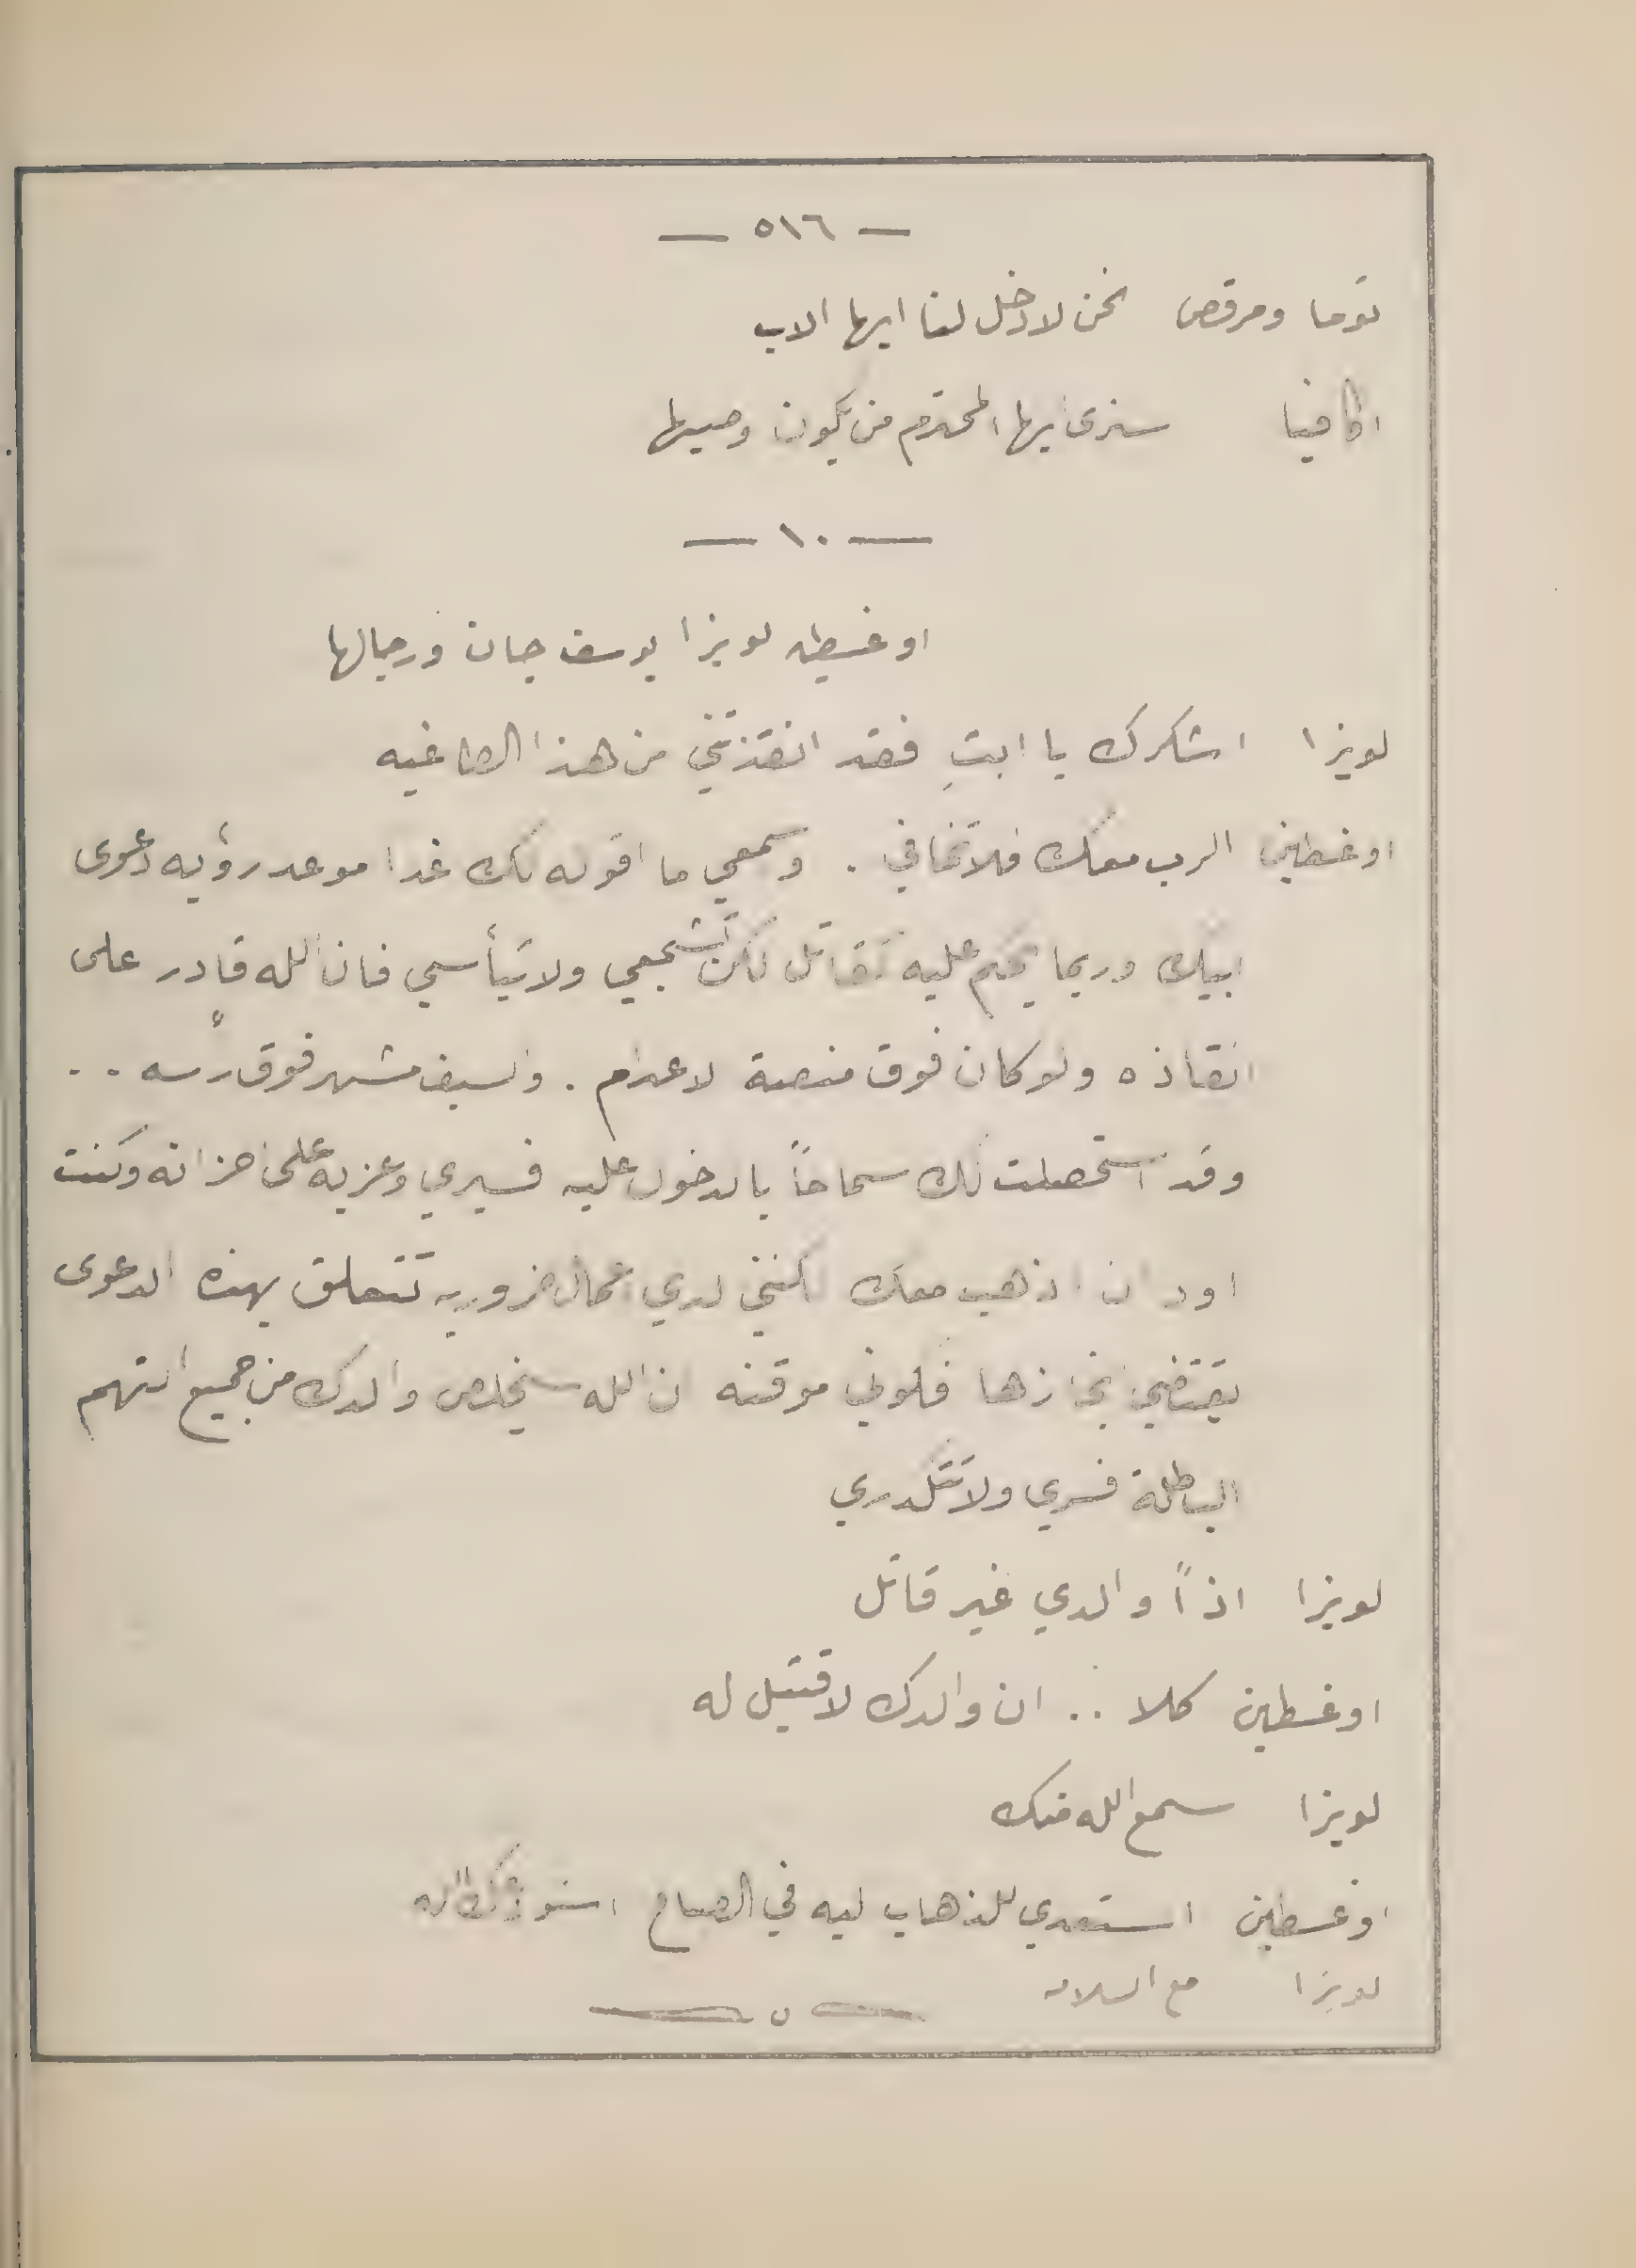 — ٥١٦ —
توما ومرقص نحن لا دخل لنا ايها الاب
سنرى ايها المحترم من يكون وصيها
— ١٠ —
لويزا يوسف جان ورجالها
لويزا اشكرك يا ابتِ فقد انقذتني من هذا الطاغيه
اوغسطين الرب معك فلا تخافي . واسمعي ما اقوله لك غدا موعد رؤيه دعوى
ابيك وربما يحكم عليه كقاتل لكن تشجعي ولا تيأسي فان الله قادر على
انقاذه ولو كان فوق منصة الاعدام . والسيف مشهر فوق رأسه . .
وقد استحصلت لك سماحاً بالدخول عليه فسيري وعزيه على احزانه وكنت
اود ان اذهب معك لكنني لدي اعمال ضروريه تتعلق بهذه الدعوى
يقتضي نجازها فكوني موقنه ان الله سيخلص والدك من جميع التهم
الباطلة فسري ولا تتكدري
لويزا اذاً والدي غير قاتل
اوغسطين كلا . . ان والدك لا قتيل له
لويزا سمع الله منك
اوغسطين استعدي للذهاب اليه في الصباح استودعك الله
لويزا مع السلامه